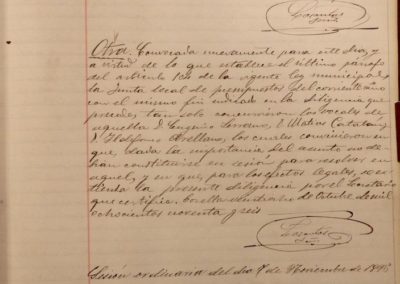 Otra. Convocada nuevamente para este dia, y
a virtud de lo que establece el último párrafo
del artículo 104 de la vigente ley municipal,
la Junta local de presupuestos del corriente año
con el mismo fin indicado en la diligencia que
precede, tan solo concurrieron los vocales de
aquella D. Eugenio Serrano, D. Matias Catalan y
D. Ildefonso Arellano, los cuales convinieron en
que, dada la importancia del asunto no de-
bian constituirse en sesión para resolver en
aquel, y en que, para los efectos legales, se es-
tienda la presente diligencia por el Secretario
que certifica. Corella de mil
ochocientos noventa y seis
Sesión ordinaria del dia 7 de Noviembre de